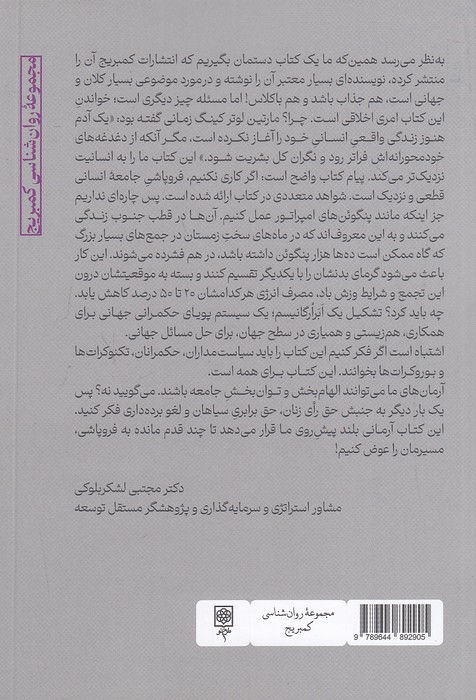 مجموعهٔ روان‌شناسی کمبریج
به‌نظر می‌رسد همین‌که ما یک کتاب دستمان بگیریم که انتشارات کمبریج آن را
منتشر کرده، نویسنده‌ای بسیار معتبر آن را نوشته و درمورد موضوعی بسیار کلان و
جهانی است، هم جذاب باشد و هم باکلاس! اما مسئله چیز دیگری است؛ خواندنِ
این کتاب امری اخلاقی است. چرا؟ مارتین لوتر کینگ زمانی گفته بود: «یک آدم
هنوز زندگی واقعیِ انسانیِ خود را آغاز نکرده است، مگر آنکه از دغدغه‌های
خودمحورانه‌اش فراتر رود و نگران کل بشریت شود.» این کتاب ما را به انسانیت
نزدیک‌تر می‌کند. پیام کتاب واضح است؛ اگر کاری نکنیم، فروپاشیِ جامعهٔ انسانی
قطعی و نزدیک است. شواهد متعددی در کتاب ارائه شده است. پس چاره‌ای نداریم
جز اینکه مانند پنگوئن‌های امپراتور عمل کنیم. آن‌ها در قطب جنوب زندگی
می‌کنند و به این معروف‌اند که در ماه‌های سختِ زمستان در جمع‌های بسیار بزرگ
که گاه ممکن است ده‌ها هزار پنگوئن داشته باشد، در هم فشرده می‌شوند. این کار
باعث می‌شود گرمای بدنشان را با یکدیگر تقسیم کنند و بسته به موقعیتشان درون
این تجمع و شرایط وزش باد، مصرف انرژی هرکدامشان ۲۰ تا ۵۰ درصد کاهش یابد.
چه باید کرد؟ تشکیل یک اَبَرارگانیسم؛ یک سیستم پویای حکمرانی جهانی برای
همکاری، هم‌زیستی و همیاری در سطح جهان، برای حل مسائل جهانی.
اشتباه است اگر فکر کنیم این کتاب را باید سیاست‌مداران، حکمرانان، تکنوکرات‌ها
و بوروکرات‌ها بخوانند. این کتاب برای همه است.
آرمان‌های ما می‌توانند الهام‌بخش و توان‌بخشِ جامعه باشند. می‌گویید نه؟ پس
یک بار دیگر به جنبش حق رأی زنان، حق برابریِ سیاهان و لغو برده‌داری فکر کنید.
این کتاب آرمانی بلند پیشِ‌روی ما قرار می‌دهد تا چند قدم مانده به فروپاشی،
مسیرمان را عوض کنیم!
دکتر مجتبی لشکربلوکی
مشاور استراتژی و سرمایه‌گذاری و پژوهشگر مستقل توسعه
مجموعهٔ روان‌شناسی
کمبریج
9 789644 892905